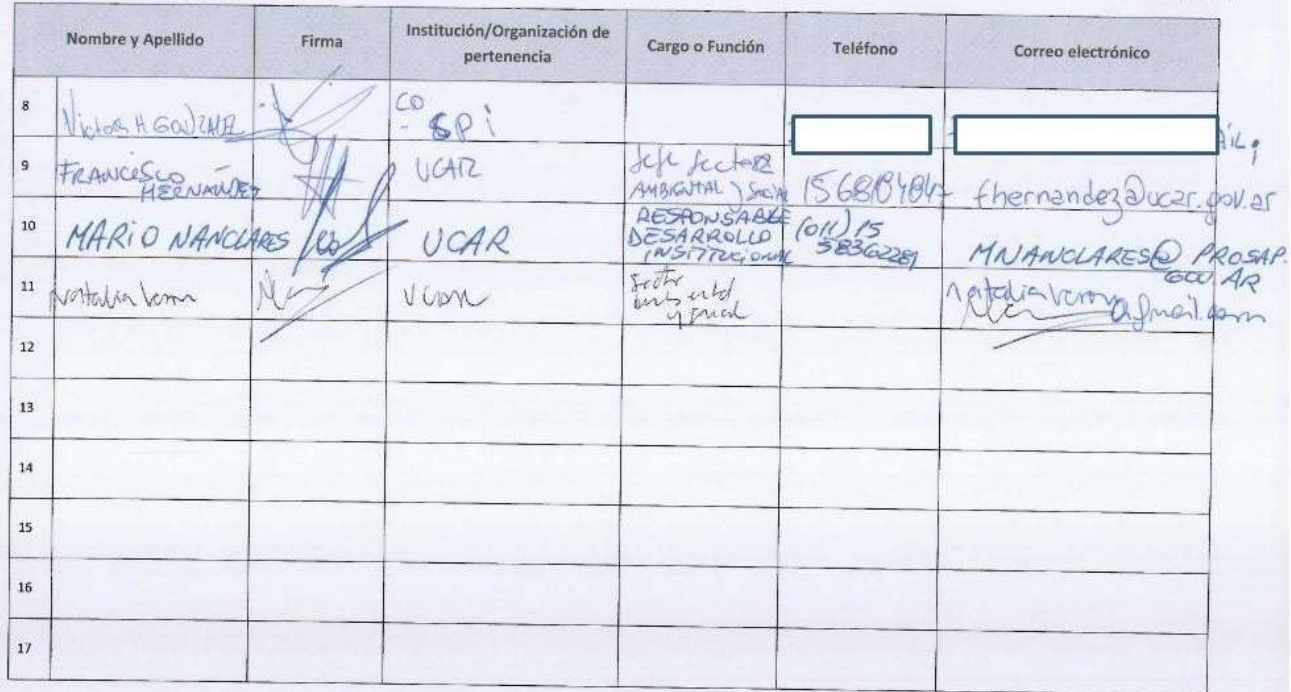 Nombre y Apellido Firma Institución/Organización de pertenencia Cargo o Función Teléfono Correo electrónico
8 Victor H GONZALEZ CO - SPi
9 FRANCISCO HERNANDEZ UCAR Jefe Sector AMBIENTAL y Social fhernandez@ucar.gov.ar
10 MARIO NANCLARES UCAR RESPONSABLE DESARROLLO INSTITUCIONAL (011) 15 58362281 MNANCLARES@PROSAP.GOV.AR
11 Natalia UCAR Sector ambiental y social @gmail.com
12
13
14
15
16
17